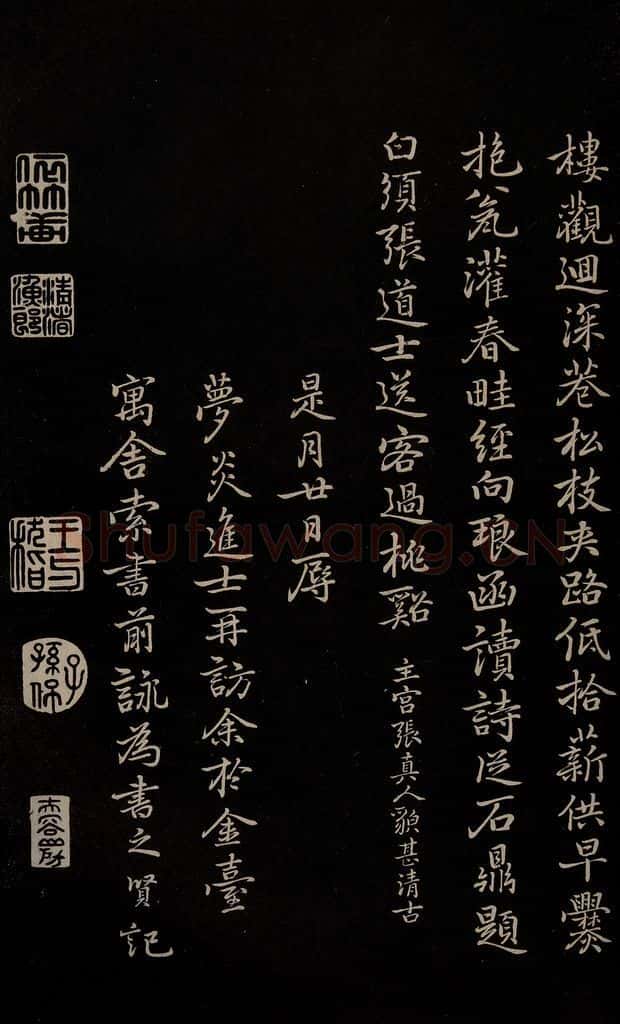 樓觀迴深巷松枝夾路低拾薪供早爨
抱瓮灌春畦經向琅函讀詩從石鼎題
白須張道士送客過桃谿 主宮張真人貌甚清古
是月廿日辱
夢炎進士再訪余於金臺
寓舍索書前詠為書之賢記
Shufawang.CN